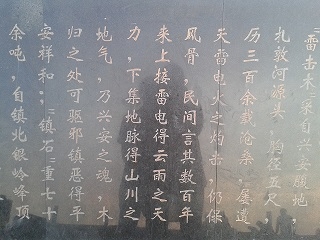 “雷击木”采自兴安腹地，
扎敦河源头，胸径五尺，
历三百余载沧桑，屡遭
天雷电火之灼击，仍保
风骨，民间言其数百年
来上接雷电得云雨之天
力，下集地脉得山川之
地气，乃兴安之魂，木
归之处可驱邪镇恶得平
安祥和；“镇石”重七十
余吨，自镇北银岭峰顶